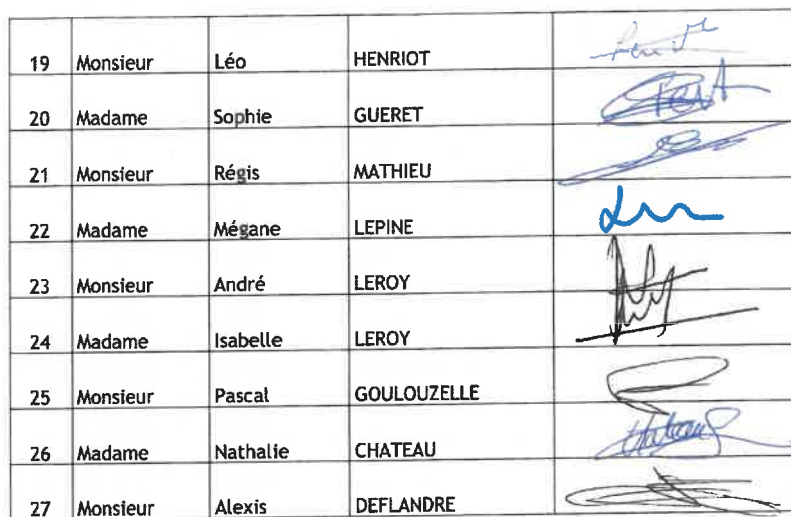 19 Monsieur Léo HENRIOT
20 Madame Sophie GUERET
21 Monsieur Régis MATHIEU
22 Madame Mégane LEPINE
23 Monsieur André LEROY
24 Madame Isabelle LEROY
25 Monsieur Pascal GOULOUZELLE
26 Madame Nathalie CHATEAU
27 Monsieur Alexis DEFLANDRE